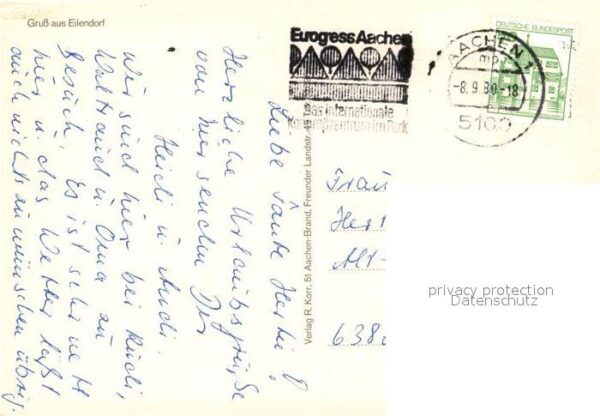 Gruß aus Eilendorf
Eurogress Aachen
Das internationale
Kongreßzentrum im Park
AACHEN 1
mp
-8.9.80-18
5100
DEUTSCHE BUNDESPOST
Liebe Tante Herta!
Herzliche Urlaubsgrüße
von hier senden Dir
Heidi u. Andi.
Wir sind hier bei Rudi,
Waltraud u. Oma zu
Besuch. Es ist sehr nett
hier u. das Wetter läßt
auch nichts zu wünschen übrig.
Verlag R. Korr, 51 Aachen-Brand, Freunder Landstr. 49
Frau
Hert
Alt-
638
privacy protection
Datenschutz